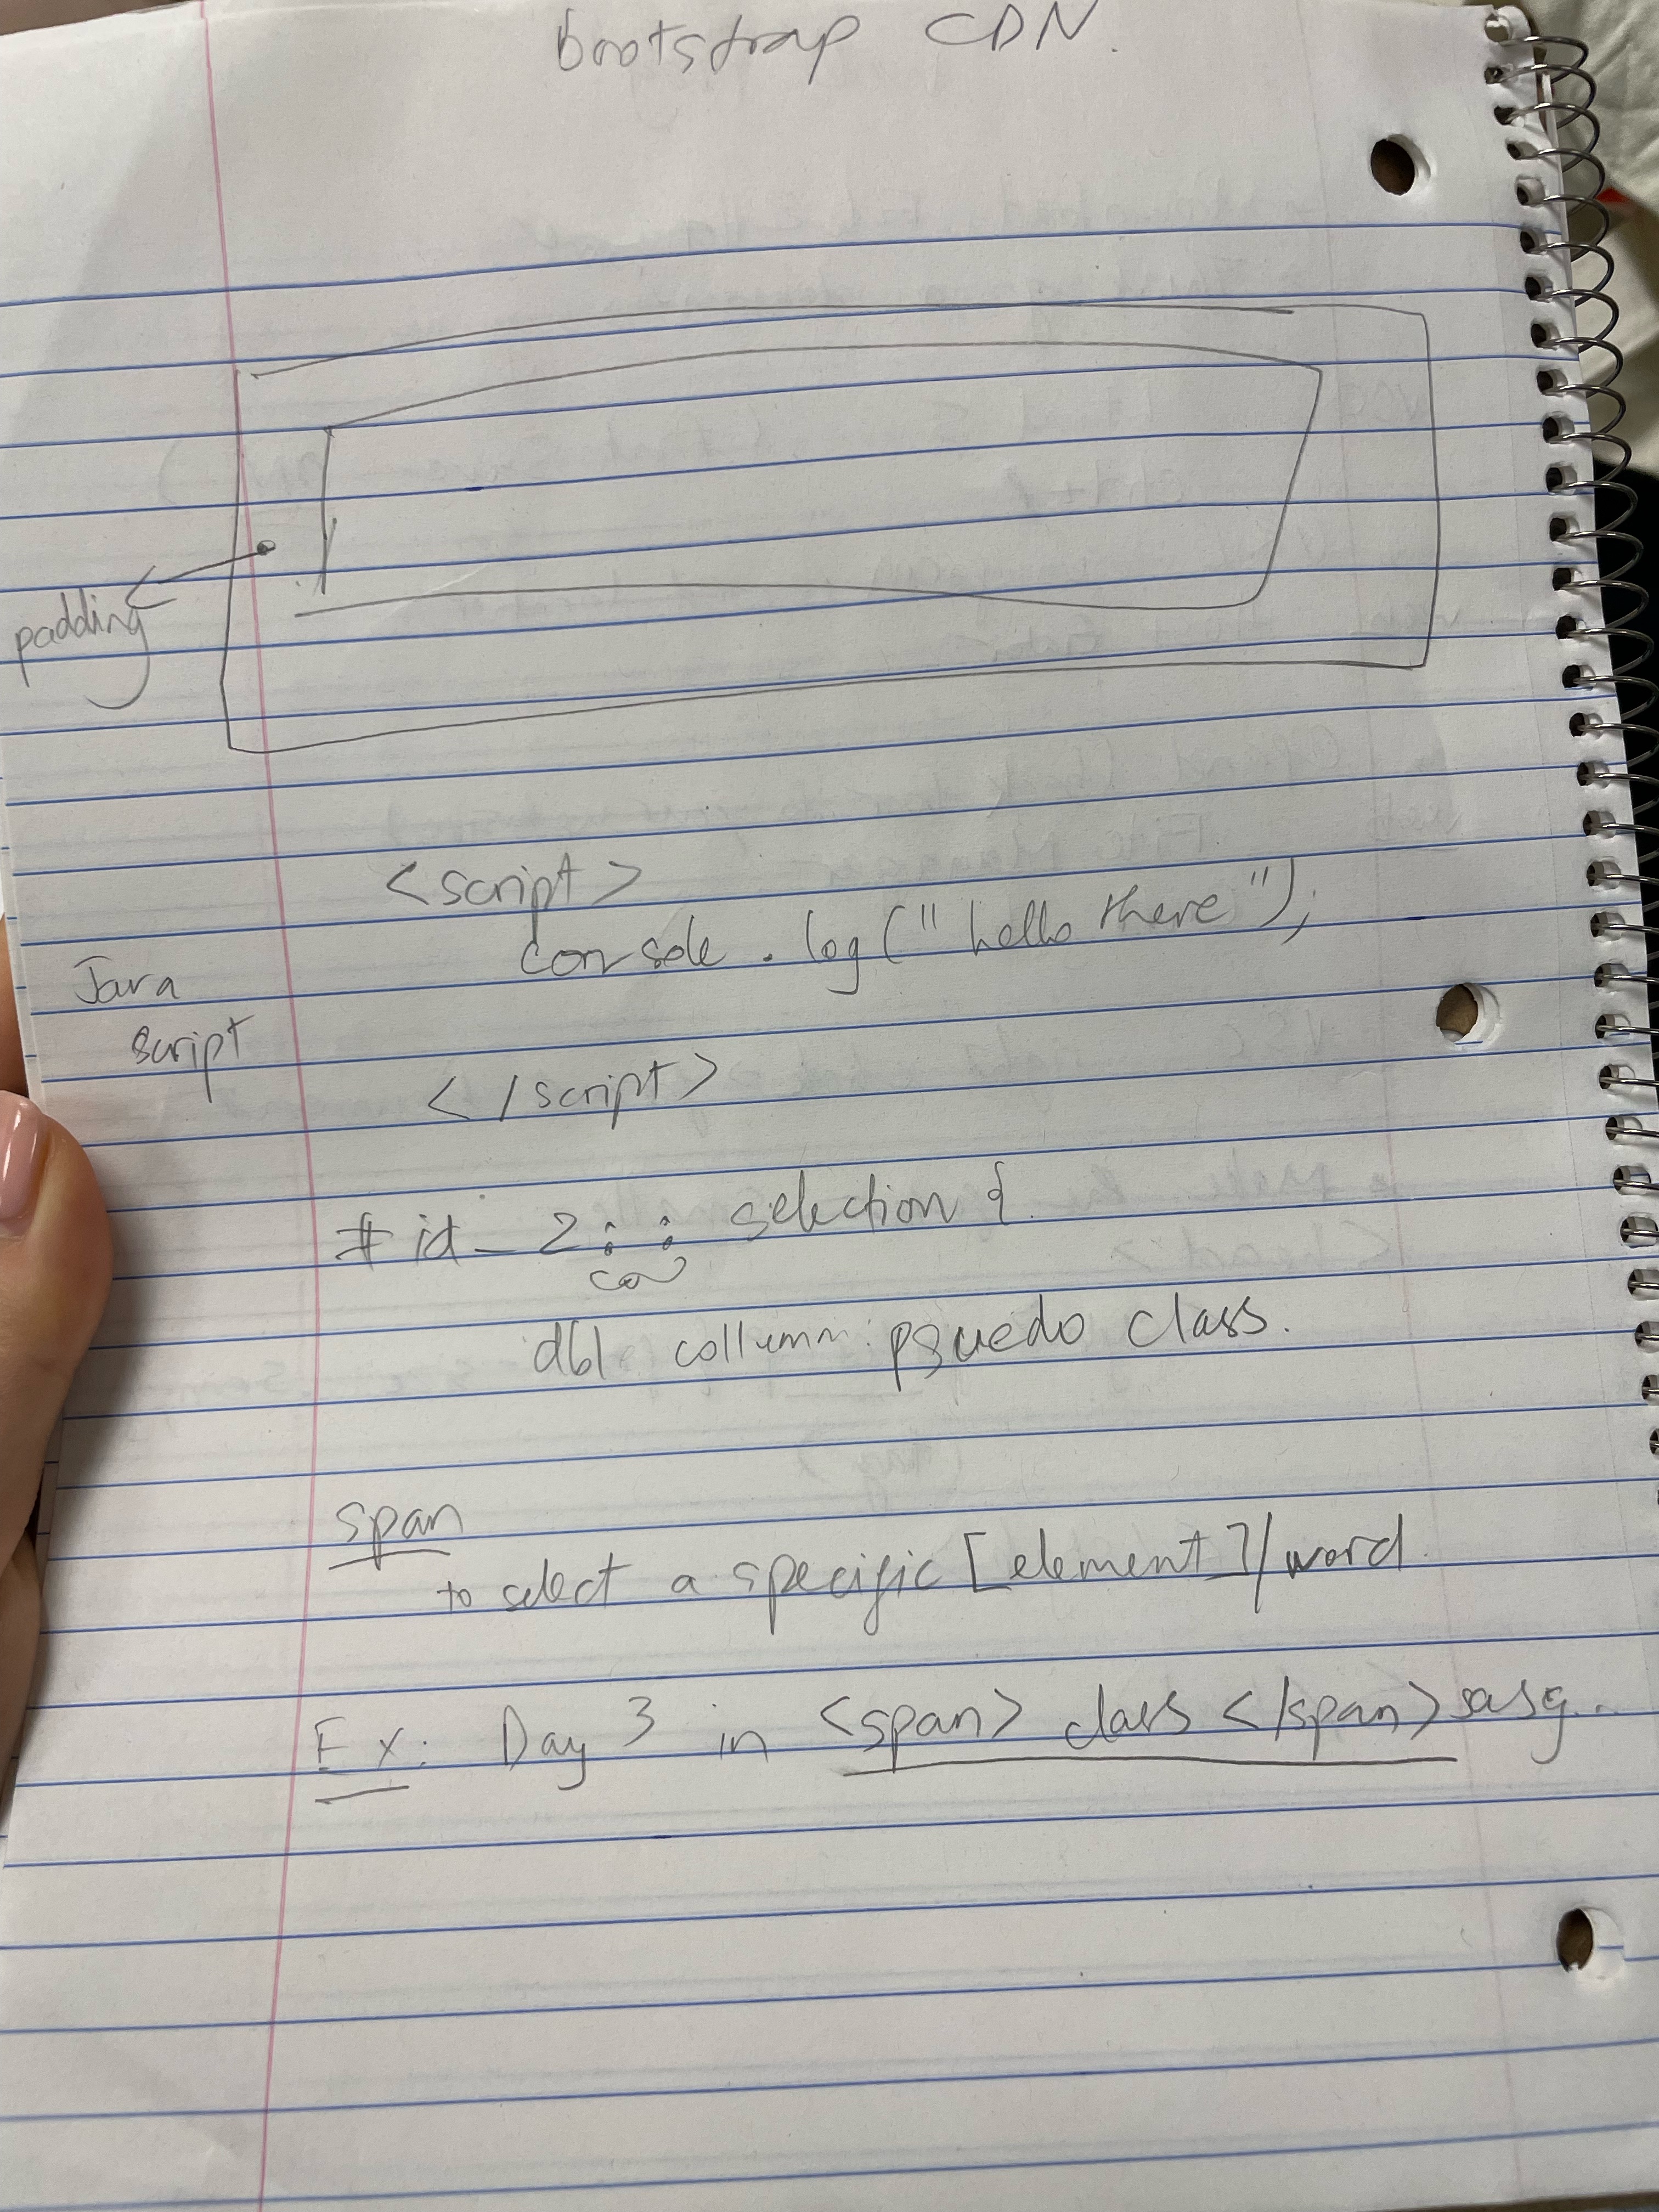 bootstrap CDN.
padding
<script>
console.log("hello there");
Java
script
</script>
#id_2:: selection {
dbl collumn: psuedo class.
span
to select a specific [element]/word
Ex: Day 3 in <span> class </span> sasg..